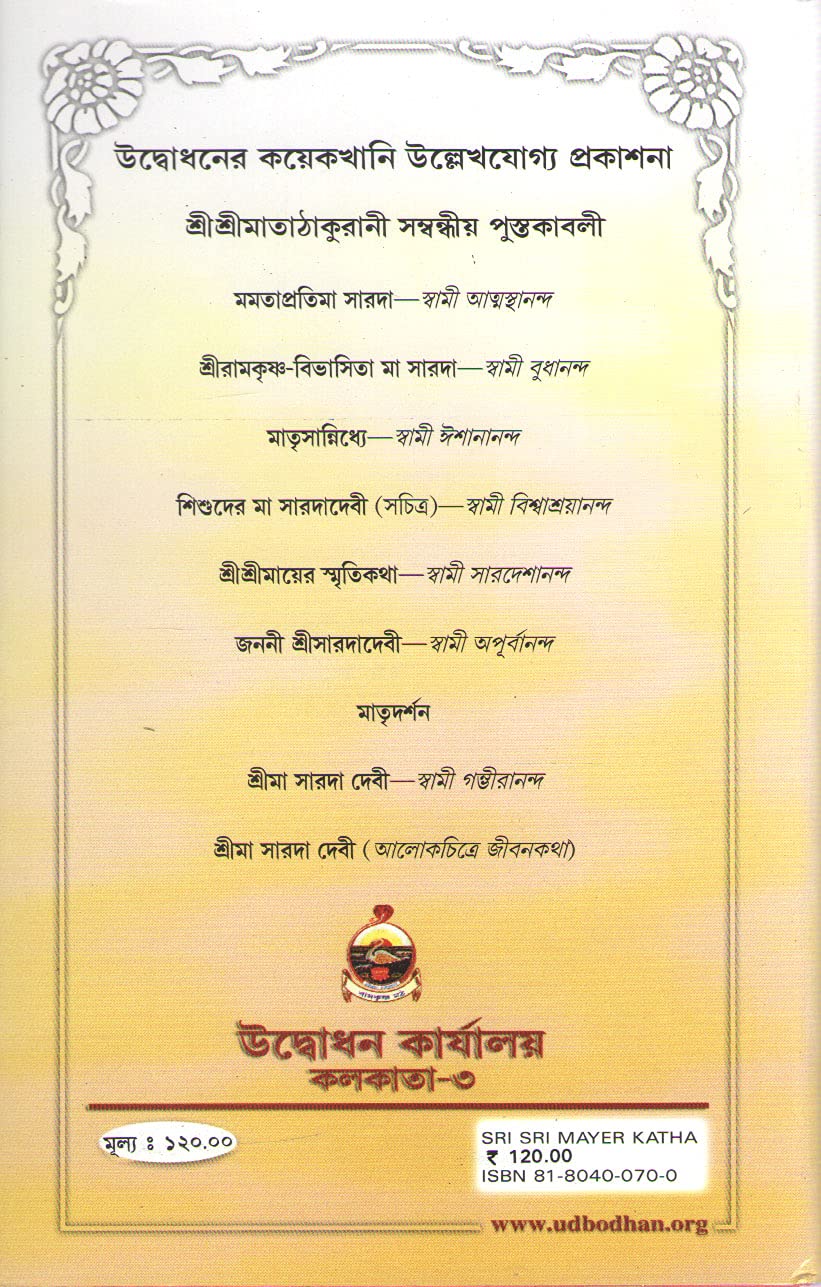 উদ্বোধনের কয়েকখানি উল্লেখযোগ্য প্রকাশনা
শ্রীশ্রীমাতাঠাকুরানী সম্বন্ধীয় পুস্তকাবলী
মমতাপ্রতিমা সারদা—স্বামী আত্মস্থানন্দ
শ্রীরামকৃষ্ণ-বিভাসিতা মা সারদা—স্বামী বুধানন্দ
মাতৃসান্নিধ্যে—স্বামী ঈশানানন্দ
শিশুদের মা সারদাদেবী (সচিত্র)—স্বামী বিশ্বাশ্রয়ানন্দ
শ্রীশ্রীমায়ের স্মৃতিকথা—স্বামী সারদেশানন্দ
জননী শ্রীসারদাদেবী—স্বামী অপূর্বানন্দ
মাতৃদর্শন
শ্রীমা সারদা দেবী—স্বামী গম্ভীরানন্দ
শ্রীমা সারদা দেবী (আলোকচিত্রে জীবনকথা)
রামকৃষ্ণ মঠ
উদ্বোধন কার্যালয়
কলকাতা-৩
মূল্য ঃ ১২০.০০
SRI SRI MAYER KATHA
₹ 120.00
ISBN 81-8040-070-0
www.udbodhan.org